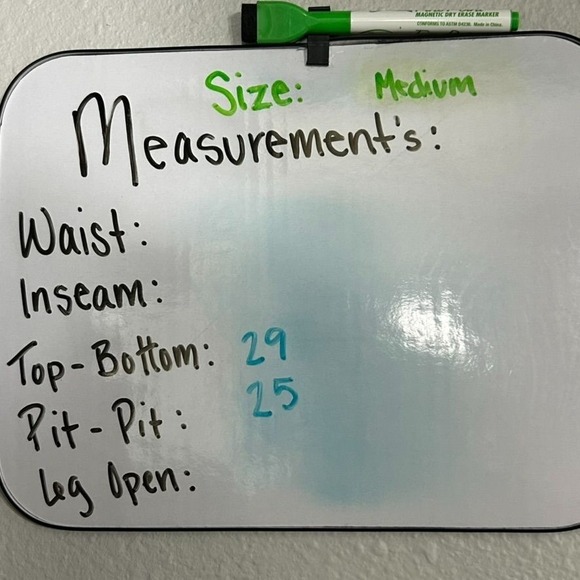 MAGNETIC DRY ERASE MARKER
CONFORMS TO ASTM D4236. Made in China
Size: Medium
Measurement's:
Waist:
Inseam:
Top-Bottom: 29
Pit-Pit: 25
Leg Open: